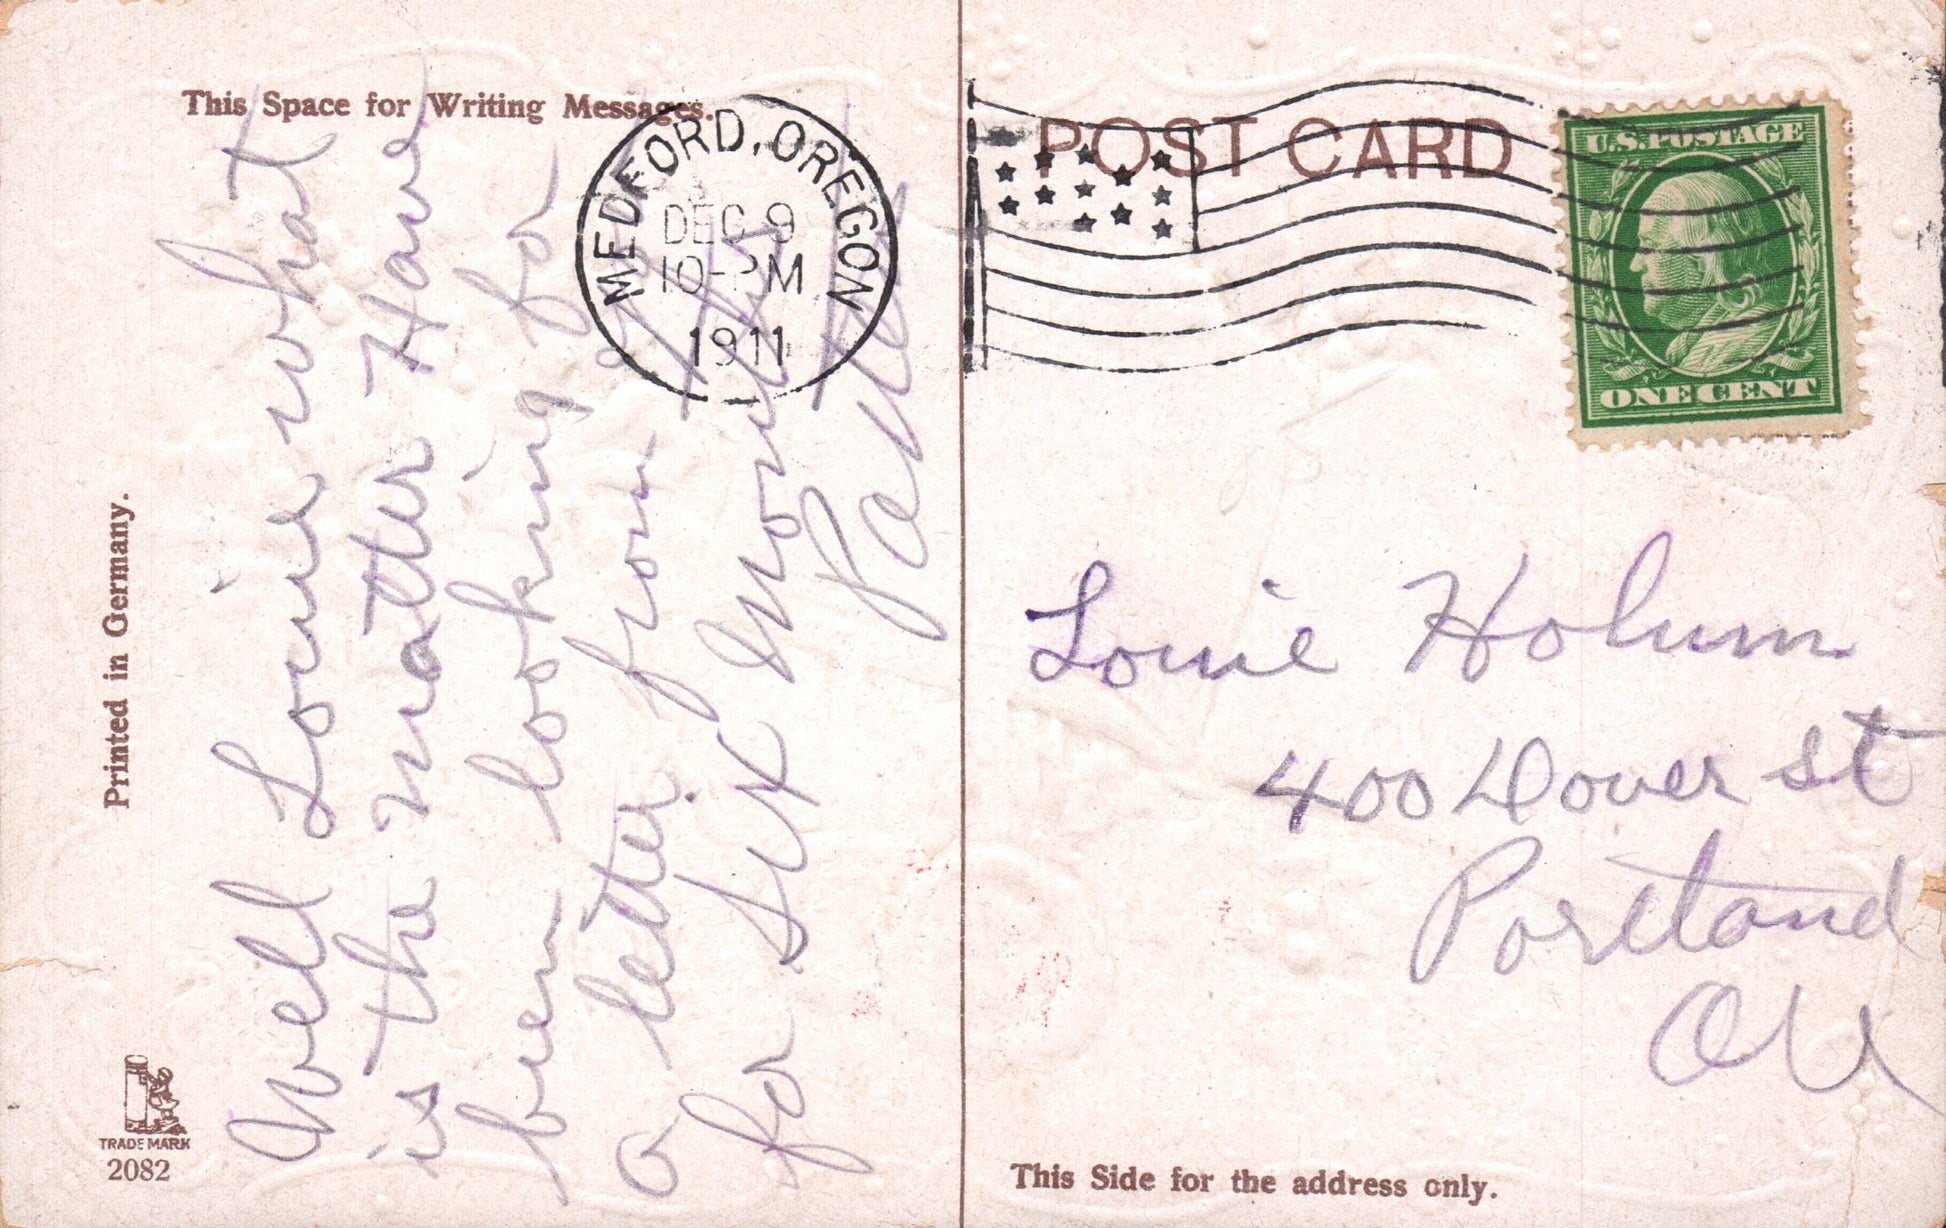 This Space for Writing Messages.
Well Louie what
is the matter Have
been looking for
a letter from you
for six Months
Pa
Printed in Germany.
TRADE MARK
2082
MEDFORD, OREGON
DEC 9
10-PM
1911
POST CARD
U.S. POSTAGE
ONE CENT
Louie Holum
400 Dover st
Portland
Ore
This Side for the address only.